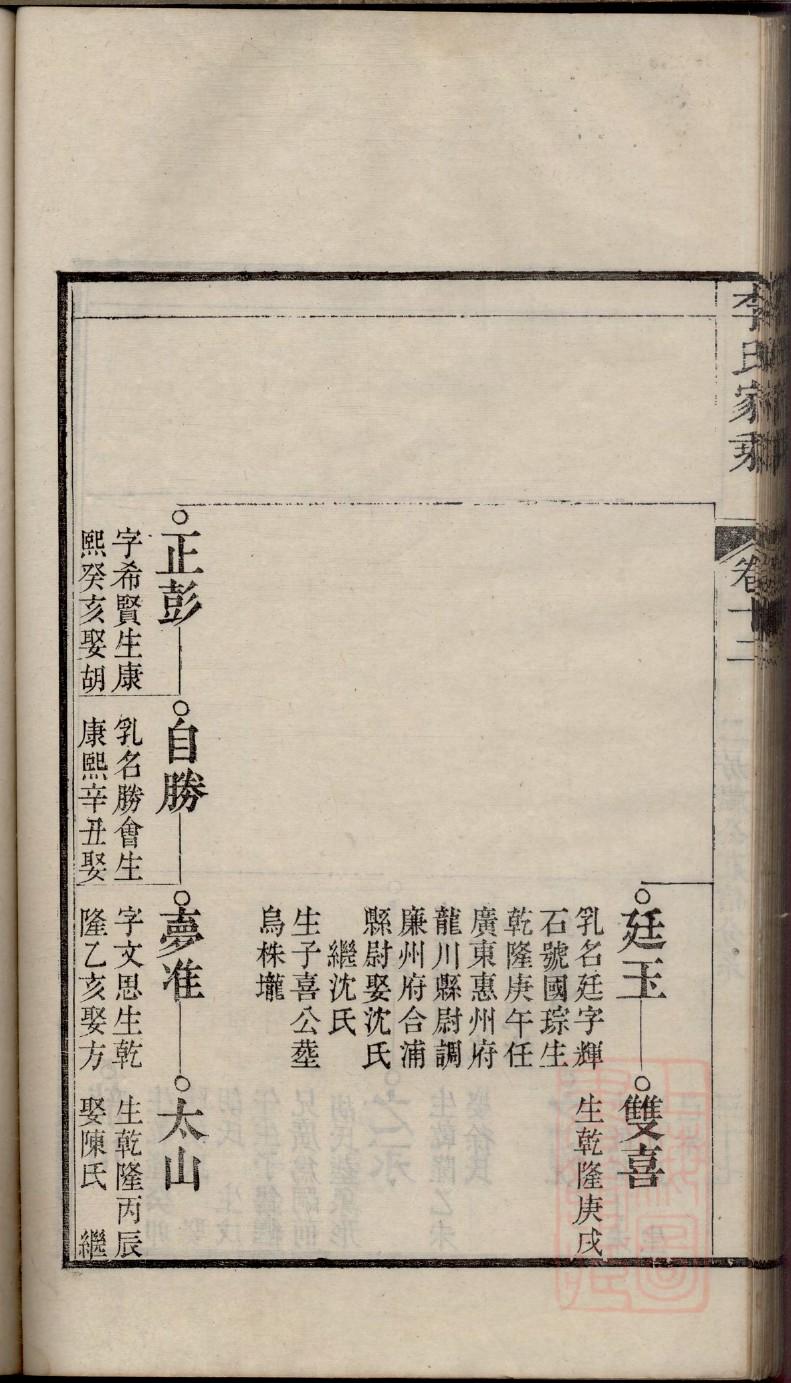 李氏家乘
卷十二
廷玉
乳名廷字輝
石號國琮生
乾隆庚午任
廣東惠州府
龍川縣尉調
廉州府合浦
縣尉娶沈氏
繼沈氏
生子喜公塟
烏株壠
雙喜
生乾隆庚戌
正彭
字希賢生康
熙癸亥娶胡
自勝
乳名勝會生
康熙辛丑娶
夢准
字文思生乾
隆乙亥娶方
太山
生乾隆丙辰
娶陳氏 繼